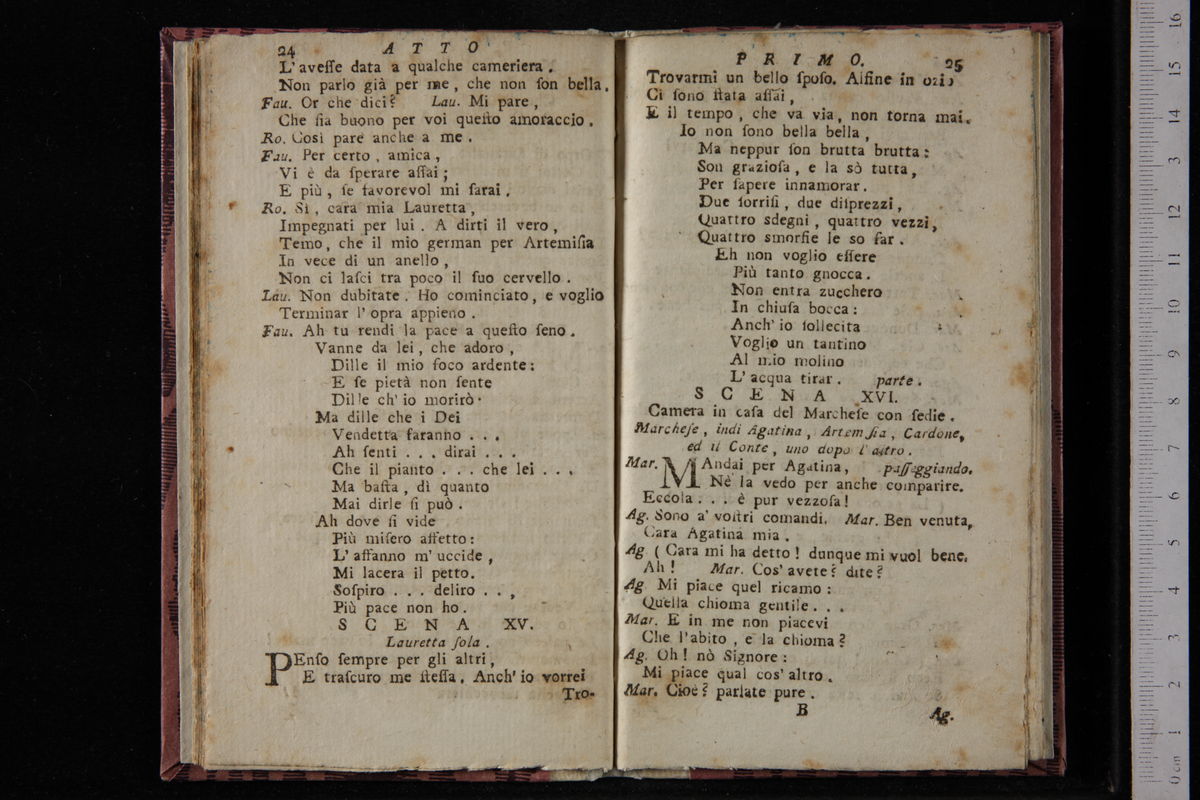 24 A T T O
L' aveſſe data a qualche cameriera.
Non parlo già per me, che non ſon bella.
Fau. Or che dici? Lau. Mi pare,
Che ſia buono per voi queſto amoraccio.
Ro. Così pare anche a me.
Fau. Per certo, amica,
Vi è da ſperare aſſai;
E più, ſe favorevol mi ſarai.
Ro. Sì, cara mia Lauretta,
Impegnati per lui. A dirti il vero,
Temo, che il mio german per Artemiſia
In vece di un anello,
Non ci laſci tra poco il ſuo cervello.
Lau. Non dubitate. Ho cominciato, e voglio
Terminar l' opra appieno.
Fau. Ah tu rendi la pace a queſto ſeno.
Vanne da lei, che adoro,
Dille il mio foco ardente:
E ſe pietà non ſente
Dille ch' io morirò.
Ma dille che i Dei
Vendetta faranno . . .
Ah ſenti . . . dirai . . .
Che il pianto . . . che lei . . .
Ma baſta, dì quanto
Mai dirle ſi può.
Ah dove ſi vide
Più miſero affetto:
L' affanno m' uccide,
Mi lacera il petto.
Soſpiro . . . deliro . . ,
Più pace non ho.
S C E N A XV.
Lauretta ſola.
PEnſo ſempre per gli altri,
E traſcuro me ſteſſa. Anch' io vorrei
Tro-
P R I M O. 25
Trovarmi un bello ſpoſo. Alfine in ozio
Ci ſono ſtata aſſai,
E il tempo, che va via, non torna mai.
Io non ſono bella bella,
Ma neppur ſon brutta brutta:
Son grazioſa, e la sò tutta,
Per ſapere innamorar.
Due ſorriſi, due diſprezzi,
Quattro sdegni, quattro vezzi,
Quattro smorfie le so far.
Eh non voglio eſſere
Più tanto gnocca.
Non entra zucchero
In chiuſa bocca:
Anch' io ſollecita
Voglio un tantino
Al mio molino
L' acqua tirar. parte.
S C E N A XVI.
Camera in caſa del Marcheſe con ſedie.
Marcheſe, indi Agatina, Artemiſia, Cardone,
ed il Conte, uno dopo l' altro.
Mar. MAndai per Agatina, paſſeggiando.
Nè la vedo per anche comparire.
Eccola . . . è pur vezzoſa!
Ag. Sono a' voſtri comandi. Mar. Ben venuta,
Cara Agatina mia.
Ag ( Cara mi ha detto! dunque mi vuol bene.
Ah! Mar. Cos' avete? dite?
Ag Mi piace quel ricamo:
Quella chioma gentile . . .
Mar. E in me non piacevi
Che l'abito, e la chioma?
Ag. Oh! nò Signore:
Mi piace qual cos' altro.
Mar. Cioè? parlate pure.
B Ag.